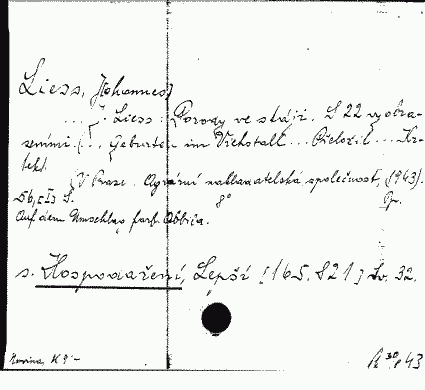 Liess, Johannes
... J. Liess: Porody ve stáji. S 22 vyobra-
zeními. (... Geburten im Viehstall ... Přeložil ...
V Praze. Agrární nakladatelská společnost, (1943).
56, [I] S. 8°
Auf dem Umschlag farb. Abbild.
s. Hospodaření, Lepší [165.821] Sv. 32.
K 9.-
43